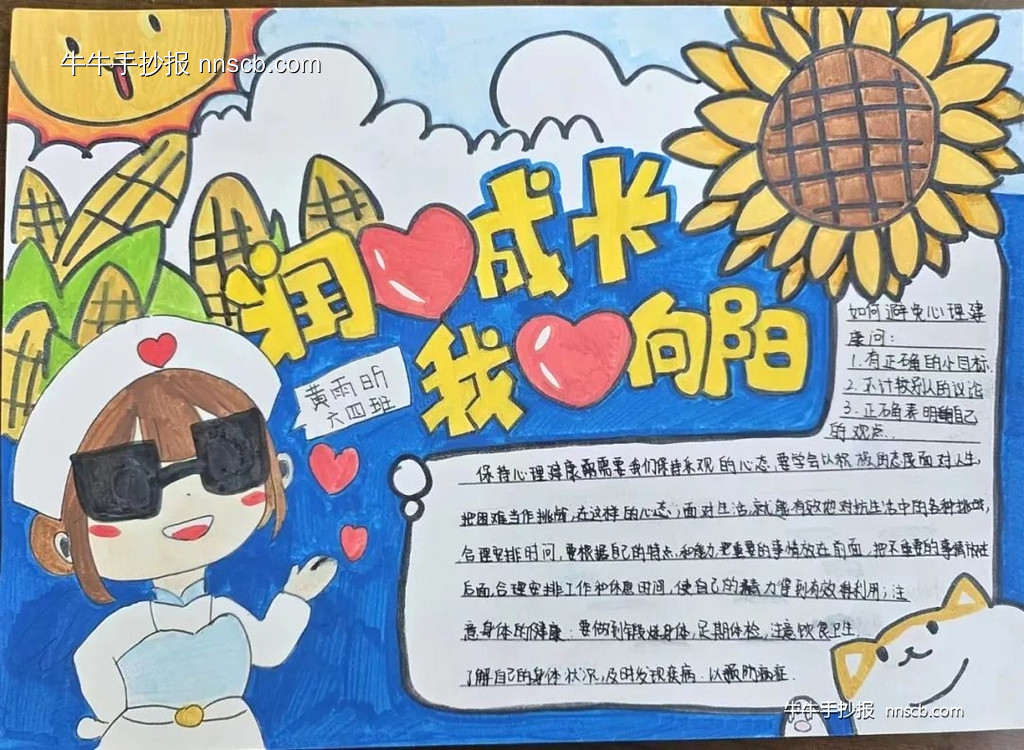 牛牛手抄报 nnscb.com
润成长
我向阳
黄雨昕
六四班
如何避免心理建
康问:
1.有正确的小目标.
2.不计较别人的议论
3.正确表明自己
的观点.
保持心理健康需要我们保持乐观的心态,要学会以积极的态度面对人生,
把困难当作挑战,在这样的心态下面对生活,就能有效地对抗生活中的各种挑战,
合理安排时间,要根据自己的特点和能力,把重要的事情放在前面,把不重要的事情放在
后面,合理安排工作和休息时间,使自己的精力得到有效利用;注
意身体的健康:要做到锻炼身体,定期体检,注意饮食卫生,
了解自己的身体状况,及时发现疾病.以预防病症.
牛牛手抄报 nnscb.com